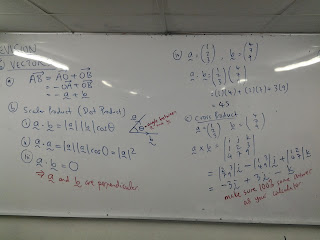 REVISION
VECTORS
(a) AB = AO + OB
= -OA + OB
= -a + b
(b) Scalar Product (Dot Product)
(i) a . b = |a||b|cosθ
a
θ
b
angle between
(ii) a . a = |a||a|cos 0 = |a|²
(iii) a . b = 0
⇒ a and b are perpendicular
a = (1 2 3) , b = (4 7 9)
a . b = (1 2 3) (4 7 9)
= (1)(4) + (2)(7) + 3(9)
= 45
(c) Cross Product
a = (1 2 3) b = (4 7 9)
a × b = | i j k |
| 1 2 3 |
| 4 7 9 |
= |2 3 7 9| i - |1 3 4 9| j + |1 2 4 7| k
= -3i + 3j - k
make sure 100% same answer
as your calculator